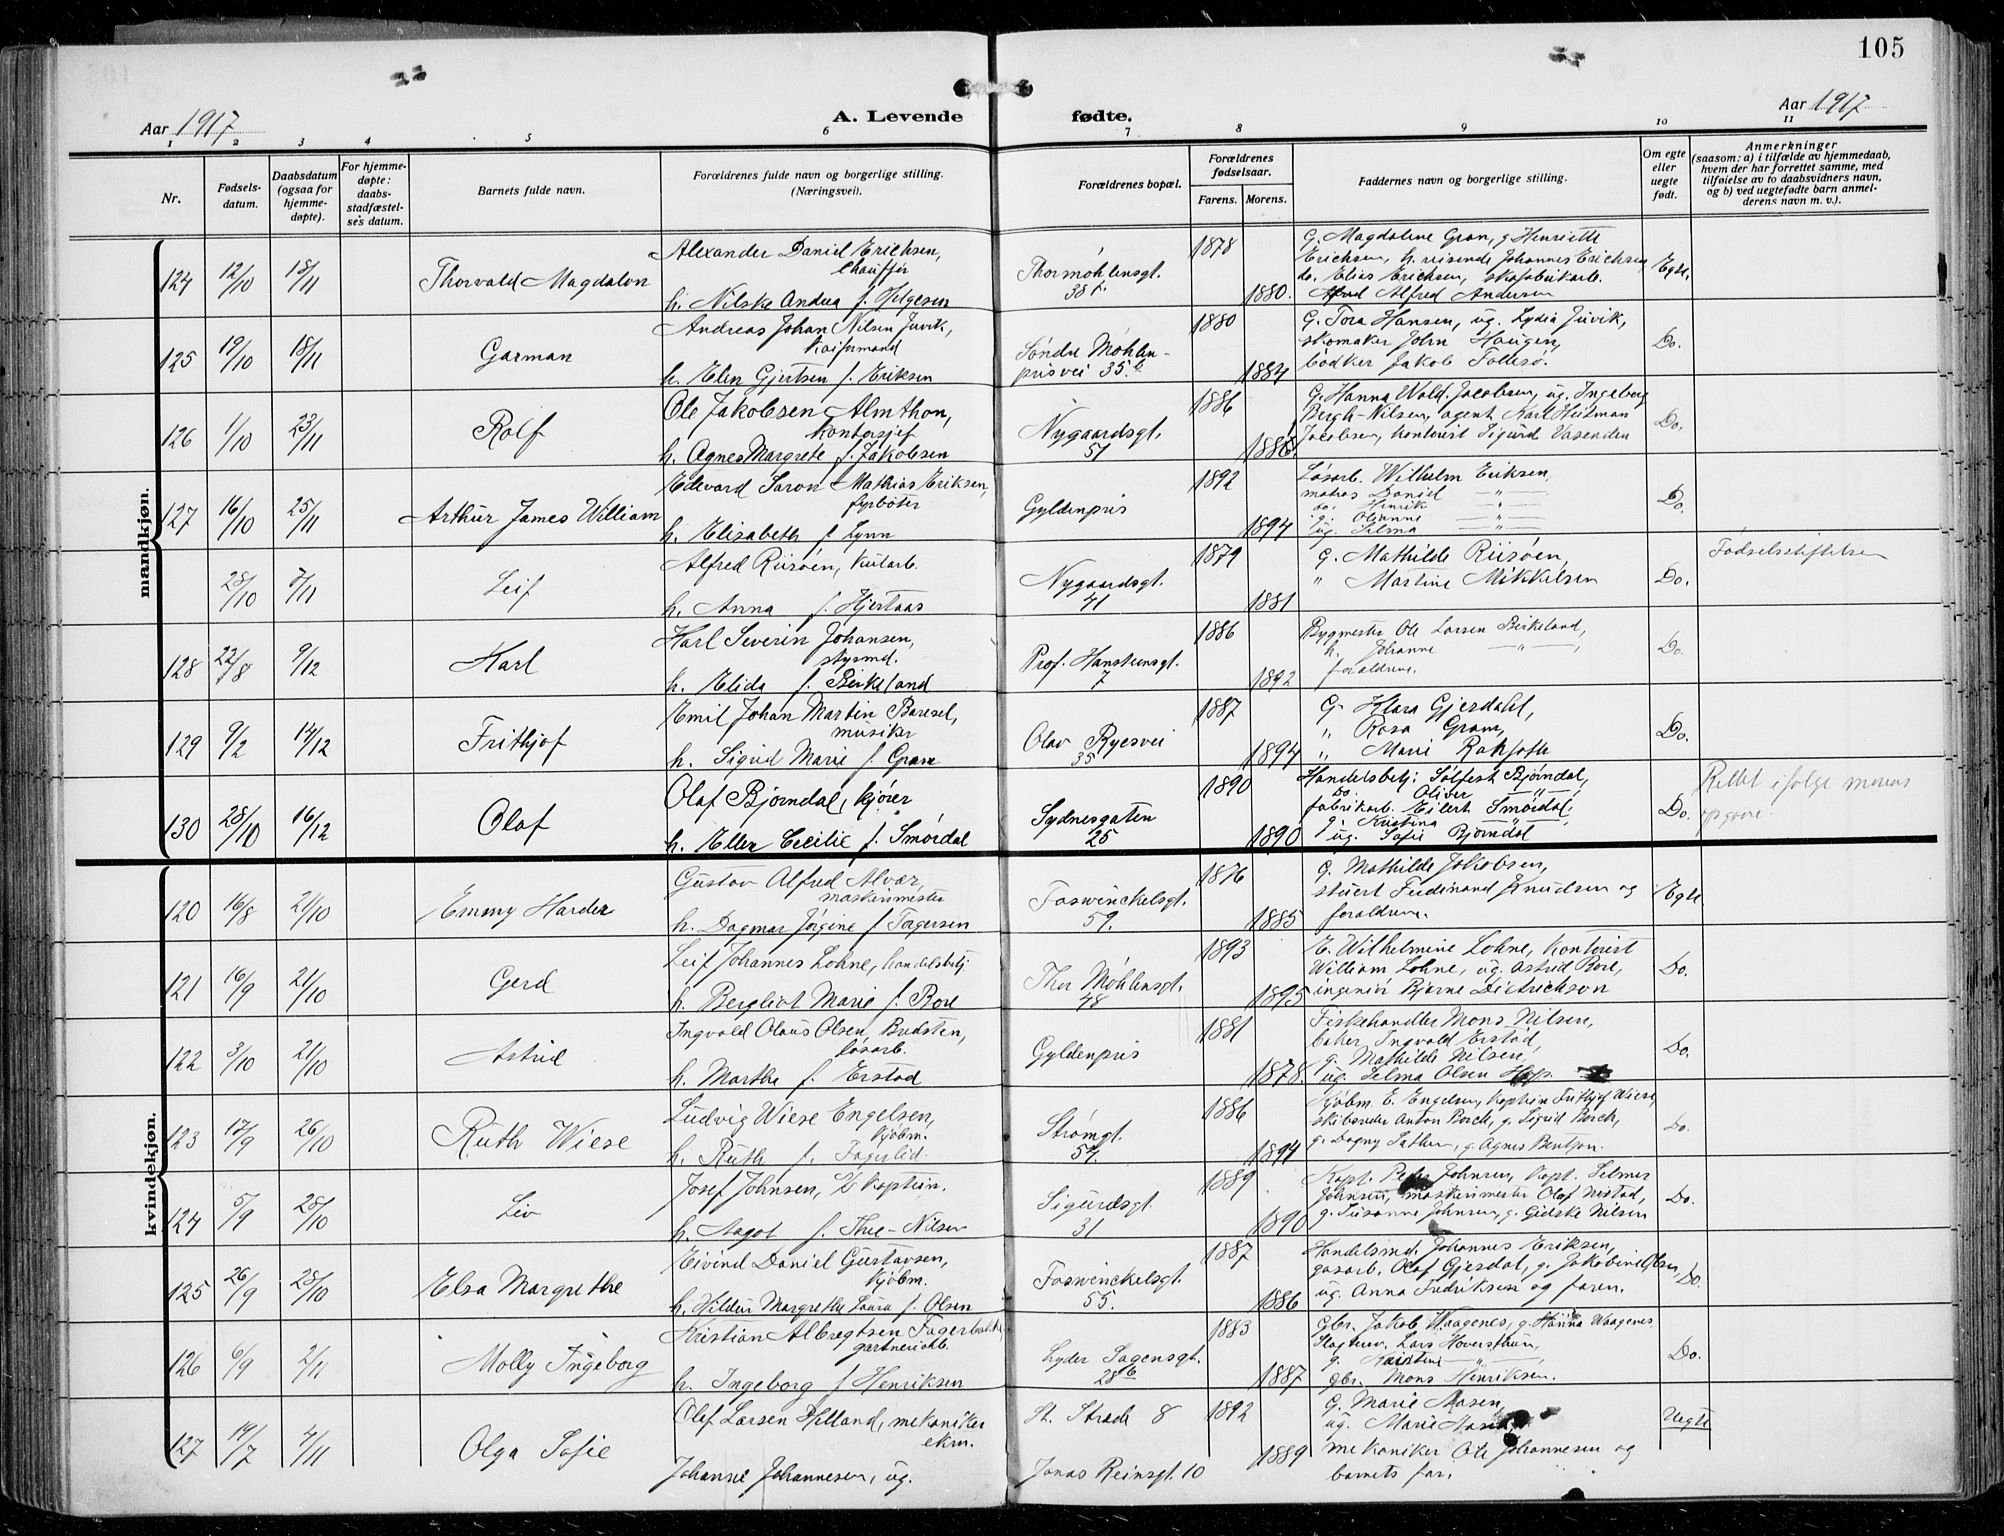 105
Aar 1917
A. Levende fødte.
Aar 1917
1 2 3 4 5 6 7 8 9 10 11
Nr.
Fødsels-
datum.
Daabsdatum
(ogsaa for
hjemme-
døpte).
For hjemme-
døpte:
daabs-
stadfæstel-
ses datum.
Barnets fulde navn.
Forældrenes fulde navn og borgerlige stilling.
(Næringsvei).
Forældrenes bopæl.
Forældrenes
fødselsaar.
Farens. Morens.
Faddernes navn og borgerlige stilling.
Om egte
eller
uegte
født.
Anmerkninger
(saasom: a) i tilfælde av hjemmedaab,
hvem der har forrettet samme, med
tilføielse av to daabsvidners navn,
og b) ved uegtefødte barn anmel-
derens navn m. v.).
mandkjøn.
124 12/10 18/11 Thorvald Magdalon
Alexander Daniel Erichsen,
chauffør
h. Nilske Andrea f. Helgesen
Thormøhlensgt.
38
1878
1880.
G. Magdalene Gran, g. Henriette
Erichsen, h. reisende Johannes Erichsen
do. Elias Erichsen, skofabrikarb.
Alfred Andersen
Egte
125 19/10 18/11 Garman
Andreas Johan Nilsen Juvik,
kaiformand
h. Elen Gjertsen f. Eriksen
Søndre Møhlen-
prisvei 35 b
1880
1884
G. Tora Hansen, ug. Lydia Juvik,
skomaker John Haugen,
bødker Jakob Follesø.
Do.
126 1/10 23/11 Rolf
Ole Jakobsen Almthon,
kontorsjef
h. Agnes Margrete f. Jakobsen
Nygaardsgt.
51
1886
1886
G. Hanna Wold. Jacobsen, ug. Ingeborg
Bergh-Nilsen, agent Karl Heitman
Jacobsen, kontorist Sigurd Vasenden
Do.
127 16/10 25/11 Arthur James William
Edevard Saron Mathias Eriksen,
fyrbøter
h. Elisabeth f. Lynn
Gyldenpris
1892
1894
Løsarb. Wilhelm Eriksen,
matros Daniel — " —
do. Henrik — " —
g. Olianne — " —
ug. Selma — " —
Do.
28/10 7/11 Leif
Alfred Riisøen, kularb.
h. Anna f. Hjertaas
Nygaardsgt.
41
1879
1881
G. Mathilde Riisøen,
" Martine Mikkelsen
Do.
Fødselsstiftelsen
128 22/8 9/12 Karl
Karl Severin Johansen,
styrmd.
h. Elida f. Birkeland
Prof. Hansteensgt.
7
1886
1892
Bygmester Ole Larsen Birkeland,
h. Johanne — " —,
forældrene.
Do.
129 9/2 14/12 Frithjof
Emil Johan Martin Baresel,
musiker
h. Sigrid Marie f. Gram
Olav Ryesvei
35
1887
1894
G. Klara Gjerdahl,
" Rosa Gram,
" Marie Rohjoth
Do.
130 28/10 16/12 Olaf
Olaf Bjørndal, kjører
h. Ellen Cecilie f. Smørdal
Sydnesgaten
25
1890
1890
Handelsbetj. Sølfest Bjørndal,
Do. Oliver — " —
fabrikarb. Eilert Smørdal,
g. Kristina — " —,
ug. Sofie Bjørndal
Do.
Rettet ifølge morens
opgave.
kvindekjøn.
120 16/8 21/10 Emmy Harder
Gustav Alfred Alvær,
maskinmester
h. Dagmar Jørgine f. Torgersen
Foswinckelsgt.
59.
1876
1885
G. Mathilde Jakobsen,
stuert Ferdinand Knudsen og
forældrene.
Egte
121 16/9 21/10 Gerd
Leif Johannes Lohne, handelsbetj.
h. Bergliot Marie f. Bore
Thor Møhlensgt.
48
1893
1895
E. Wilhelmine Lohne, kontorist
William Lohne, ug. Astrid Bore,
ingeniør Bjarne Dietrichson
Do.
122 3/10 21/10 Astrid
Ingvald Olaus Olsen Budsten,
løsarb.
h. Marthe f. Erstad
Gyldenpris
1881
1878.
Fiskehandler Mons Nilsen,
baker Ingvald Erstad,
g. Mathilde Nilsen,
ug. Selma Olsen Hop.
Do.
123 17/9 26/10 Ruth Wiese
Ludvig Wiese Engelsen,
kjøbm.
h. Ruth f. Fagerlid.
Strømgt.
54.
1886
1894
Kjøbm. E. Engelsen, kaptein Fritjof Wiese,
skibsreder Anton Borch, g. Sigrid Borch,
g. Dagny Sather, g. Agnes Bentzon.
Do.
124 5/9 28/10 Liv
Josef Johnsen, kaptein.
h. Aagot f. Thue-Nilsen
Sigurdsgt.
31
1889
1890
Kapt. Peder Johnsen, kapt. Selmer
Johnsen, maskinmester Olaf Nestad,
g. Susanne Johnsen, g. Gidske Nilsen
Do.
125 26/9 28/10 Elsa Margrethe
Eivind Daniel Gustavsen,
kjøbm.
h. Hildur Margrethe Laura f. Olsen
Foswinckelsgt.
55.
1887
1886
Handelsmd. Johannes Eriksen,
gasarb. Olaf Gjesdal, g. Jakobine Olsen,
ug. Anna Fredriksen og faren.
Do.
126 6/9 2/11 Molly Ingeborg
Kristian Albregtsen Fagerbakke,
gartneriarb.
h. Ingeborg f. Henriksen
Lyder Sagensgt.
28 b
1883
1887
Gbr. Jakob Waagenes, g. Hanna Waagenes
Lars Hoverstrum,
g. Kristine — " —,
gbr. Mons Henriksen.
Do.
127 19/7 4/11 Olga Sofie
Olaf Larsen Hilland, mekaniker
ekm.
Johanne Johannesen, ug.
St. Strade 8
Jonas Reinsgt. 10
1892
1889
G. Marie Aasen,
ug. Marie Aasen
mekaniker Ole Johannesen og
barnets far.
Uegte